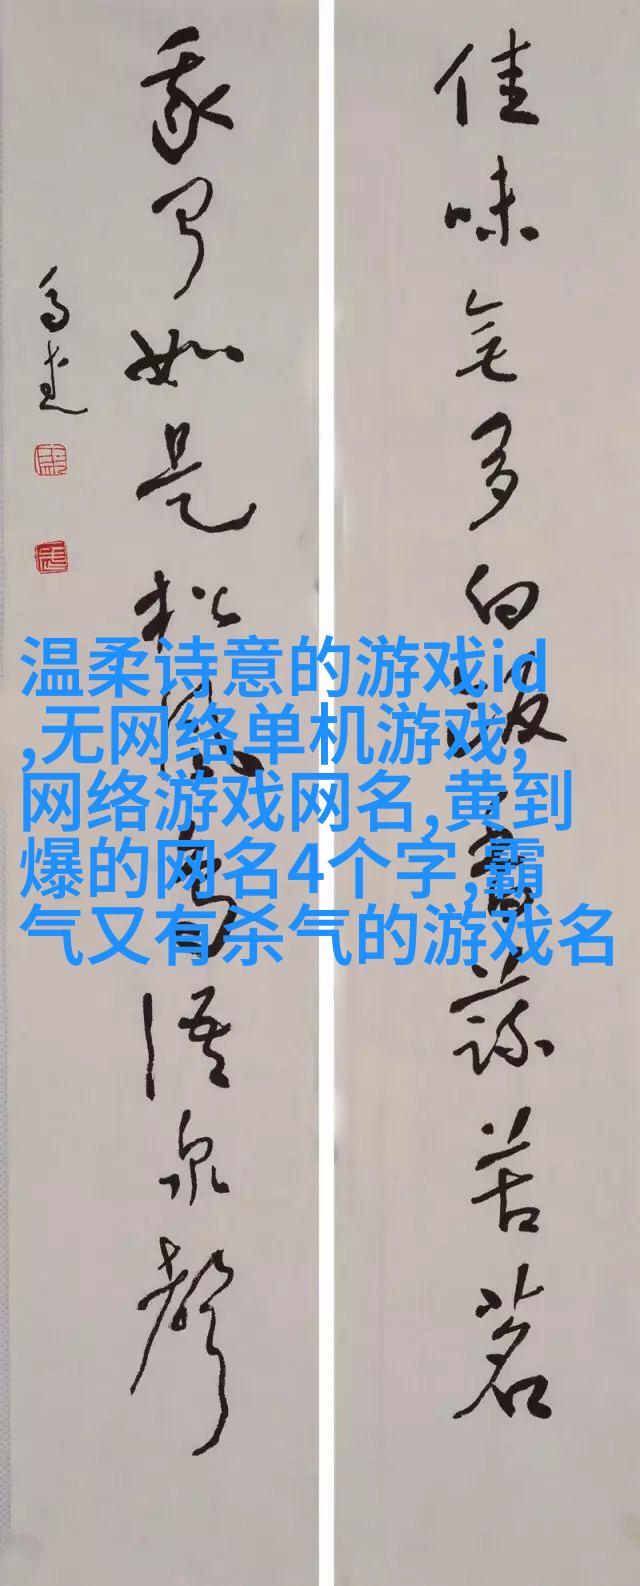 佳味無多白飯香蔬苦茗
我聞如是松風鳥語泉聲
温柔诗意的游戏id
,无网络单机游戏,
网络游戏网名,黄到
爆的网名4个字,霸
气又有杀气的游戏名